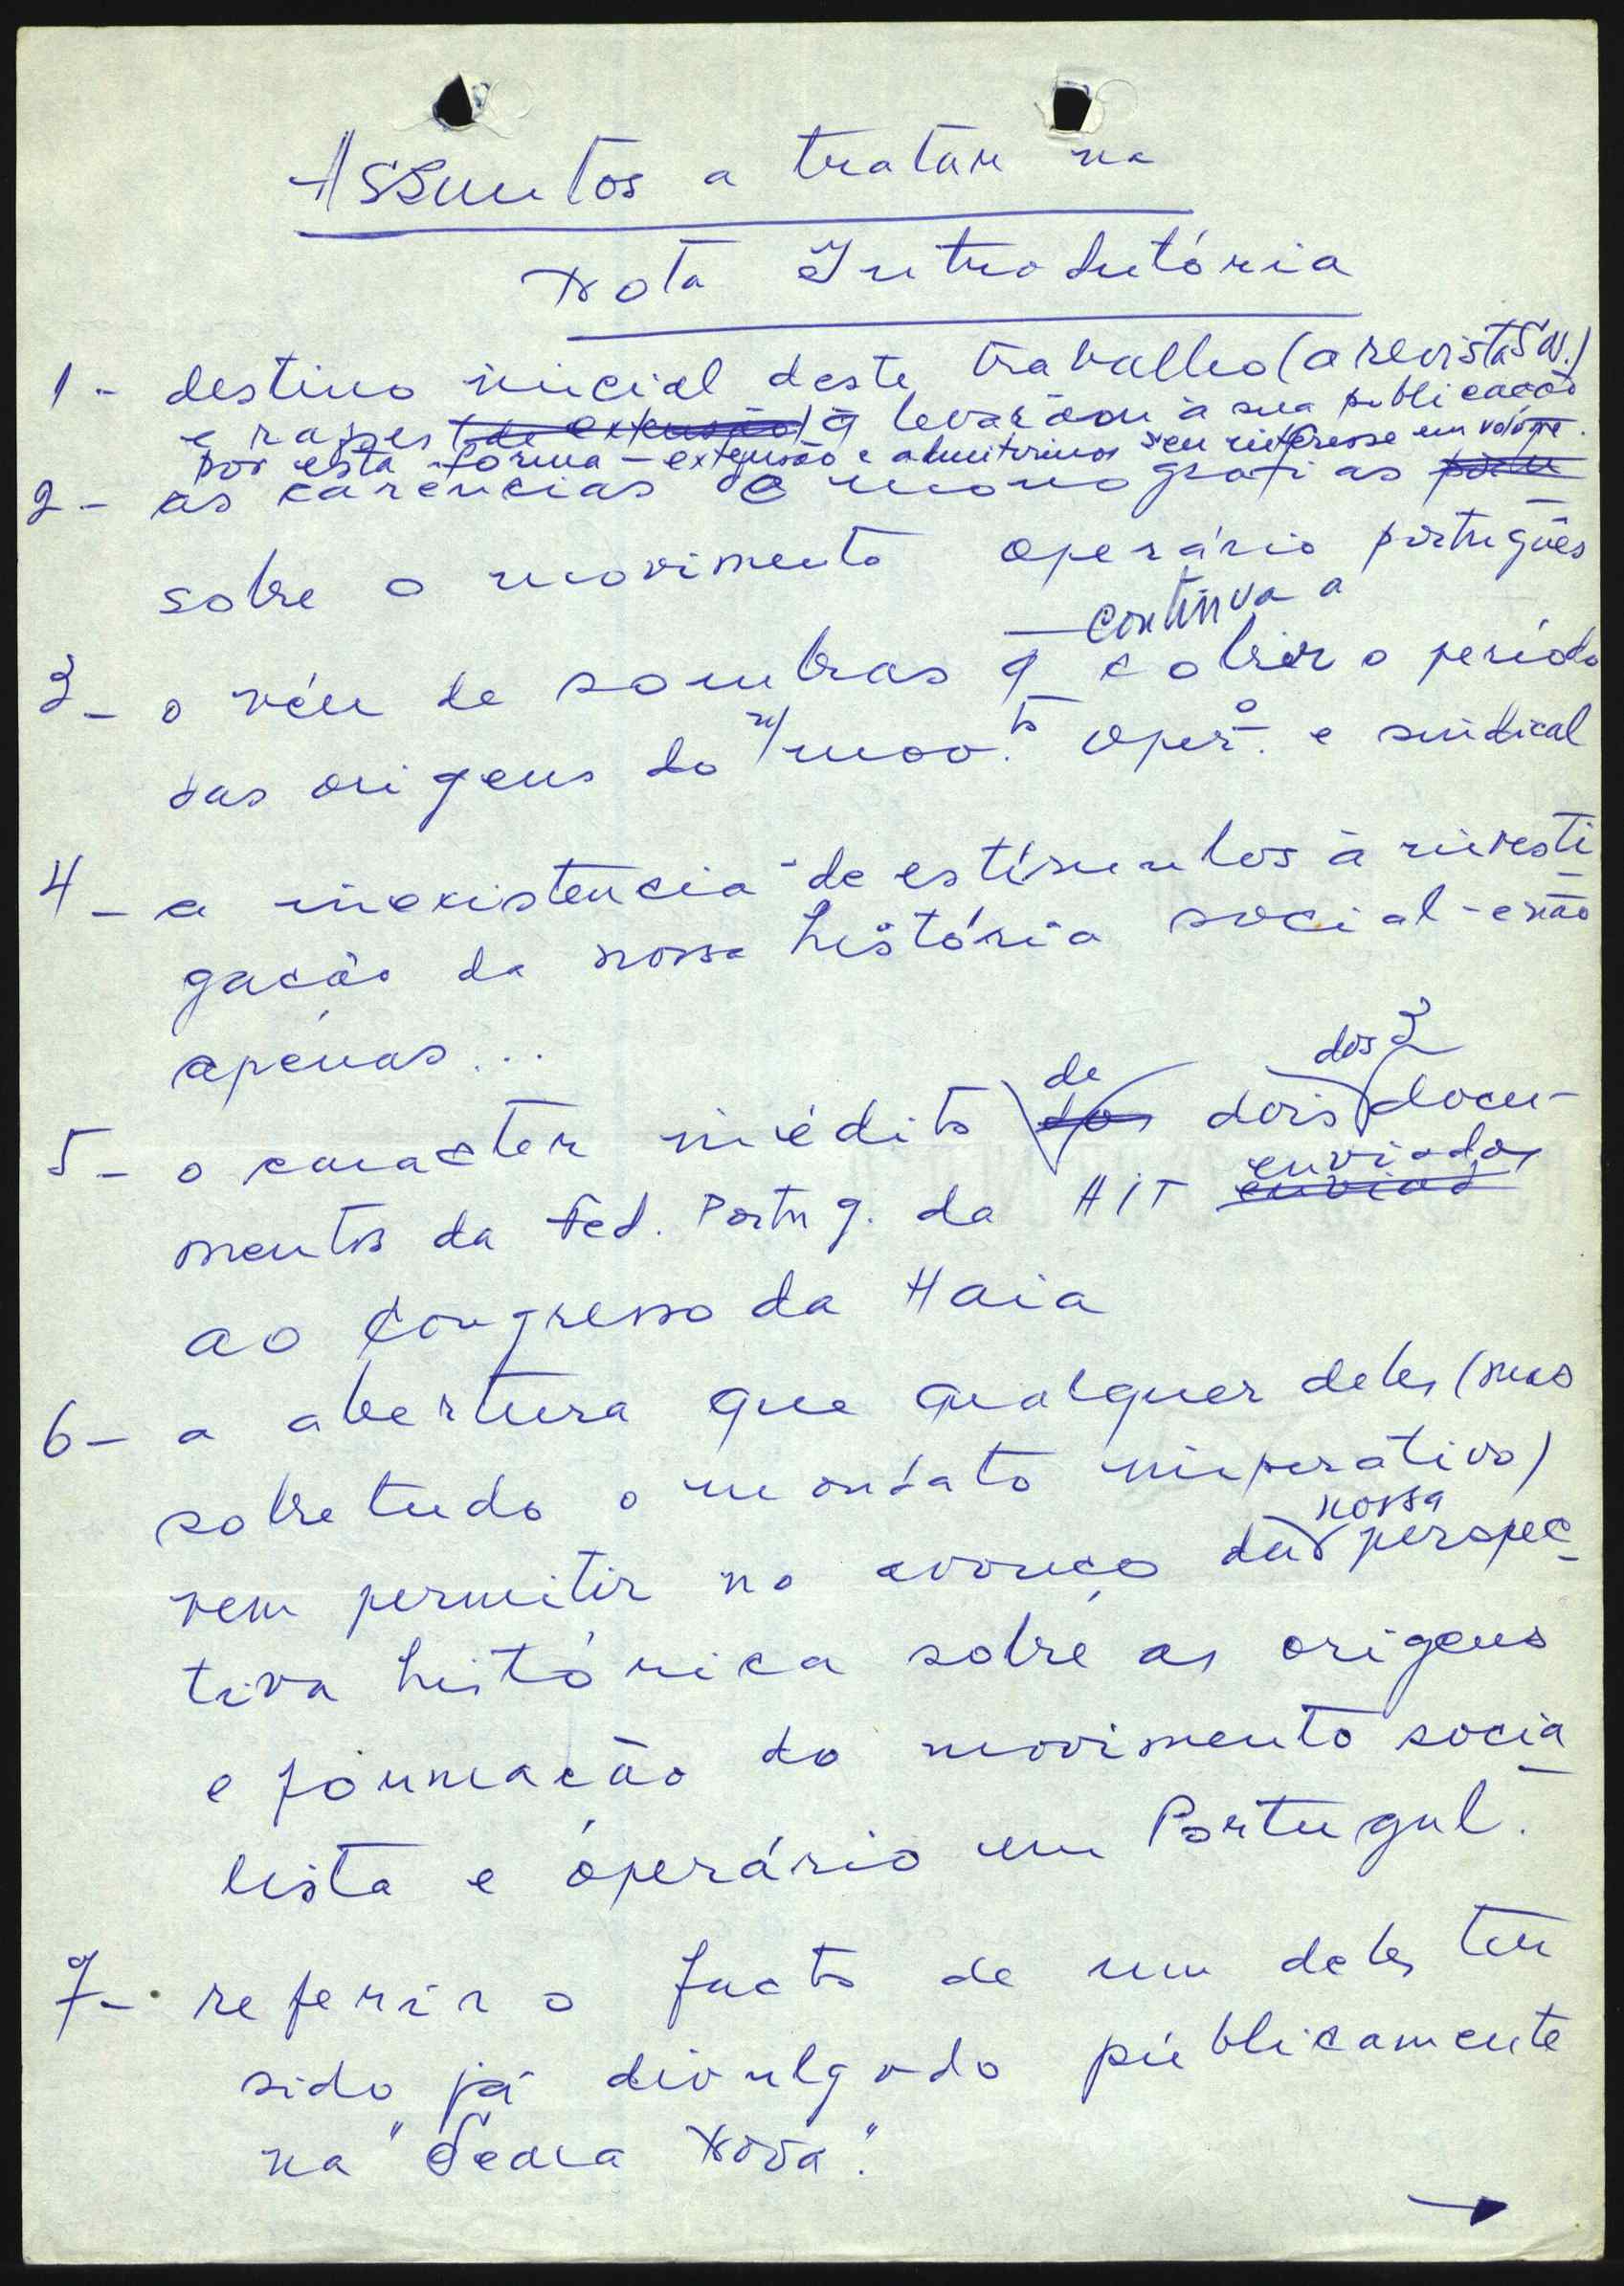 Assuntos a tratar na
Nota Introdutória
1 - destino inicial deste trabalho (a revista S.N.)
e razões (de extensão) q levaram à sua publicação
por esta forma - extensão e admitirmos seu interesse em volume.
2 - as carências de monografias
sobre o movimento operário português
continua a
3 - o véu de sombras q cobrir o período
das origens do n/ mov.to oper.o e sindical
4 - a inexistência de estímulos à investi
gação da nossa história social - e não
apenas...
de dos 2
5 - o caracter inédito dos dois docu-
enviados
mentos da Fed. Portug. da AIT enviad
ao Congresso da Haia
6 - a abertura que qualquer deles (mas
sobretudo o mandato imperativo)
nossa
vem permitir no avanço da perspec
tiva histórica sobre as origens
e formação do movimento socia
lista e operário em Portugal.
7 - referir o facto de um deles ter
sido já divulgado públicamente
na "Seara Nova".
→